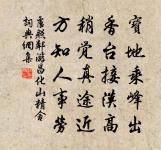 寶地乘峰出
香台接漢高
稍覺真途近
方知人事勞
盧照鄰游昌化山精舍
詞典網集